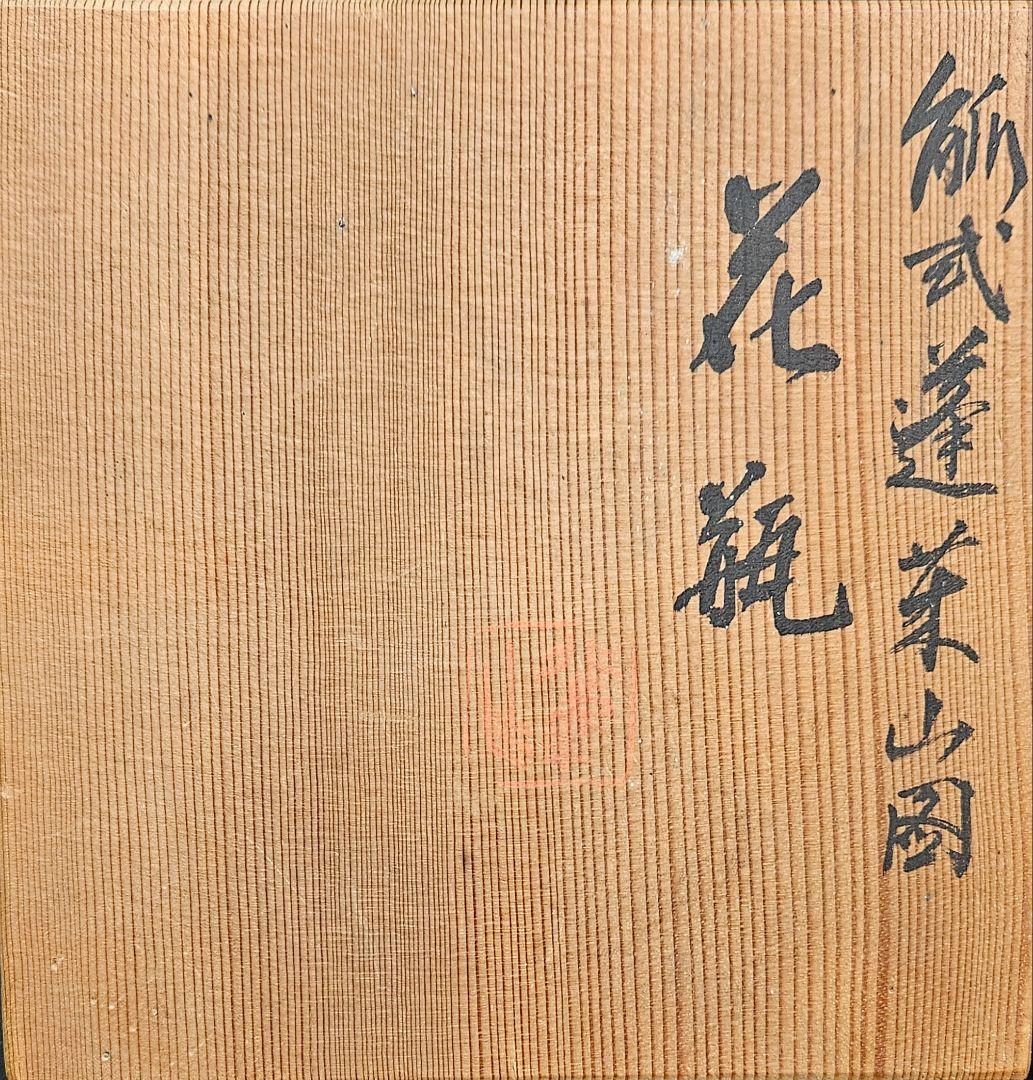 觚式蓬莱山図
花瓶